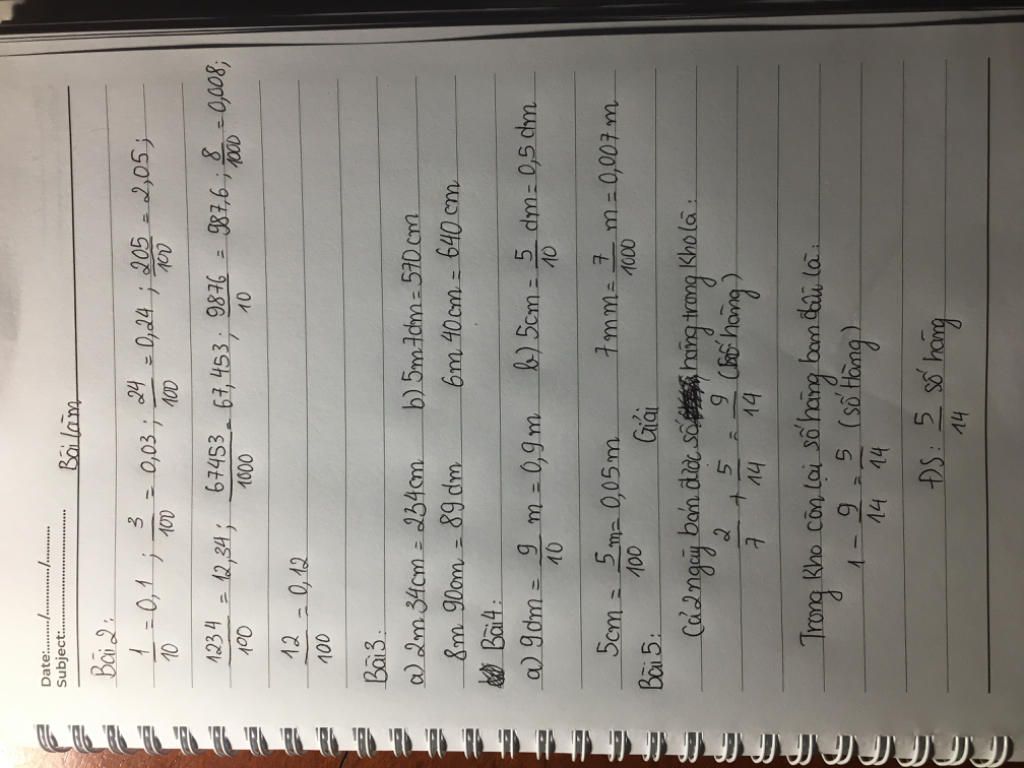 Date:......./......./.......
Subject:..............................
Bài làm
Bài 2:
1/10 = 0,1 ; 3/100 = 0,03 ; 24/100 = 0,24 ; 205/100 = 2,05 ;
1234/100 = 12,34 ; 67453/1000 = 67,453 ; 9876/10 = 987,6 ; 8/1000 = 0,008 ;
12/100 = 0,12
Bài 3:
a) 2m 34cm = 234cm b) 5m 7dm = 570cm
8m 90cm = 89dm 6m 40cm = 640cm
Bài 4:
a) 9dm = 9/10 m = 0,9m b) 5cm = 5/10 dm = 0,5dm
5cm = 5/100 m = 0,05m 7mm = 7/1000 m = 0,007m
Bài 5: Giải
Cả 2 ngày bán được số hàng trong kho là:
2/7 + 5/14 = 9/14 (số hàng)
Trong kho còn lại số hàng ban đầu là:
1 - 9/14 = 5/14 (số hàng)
ĐS: 5/14 số hàng